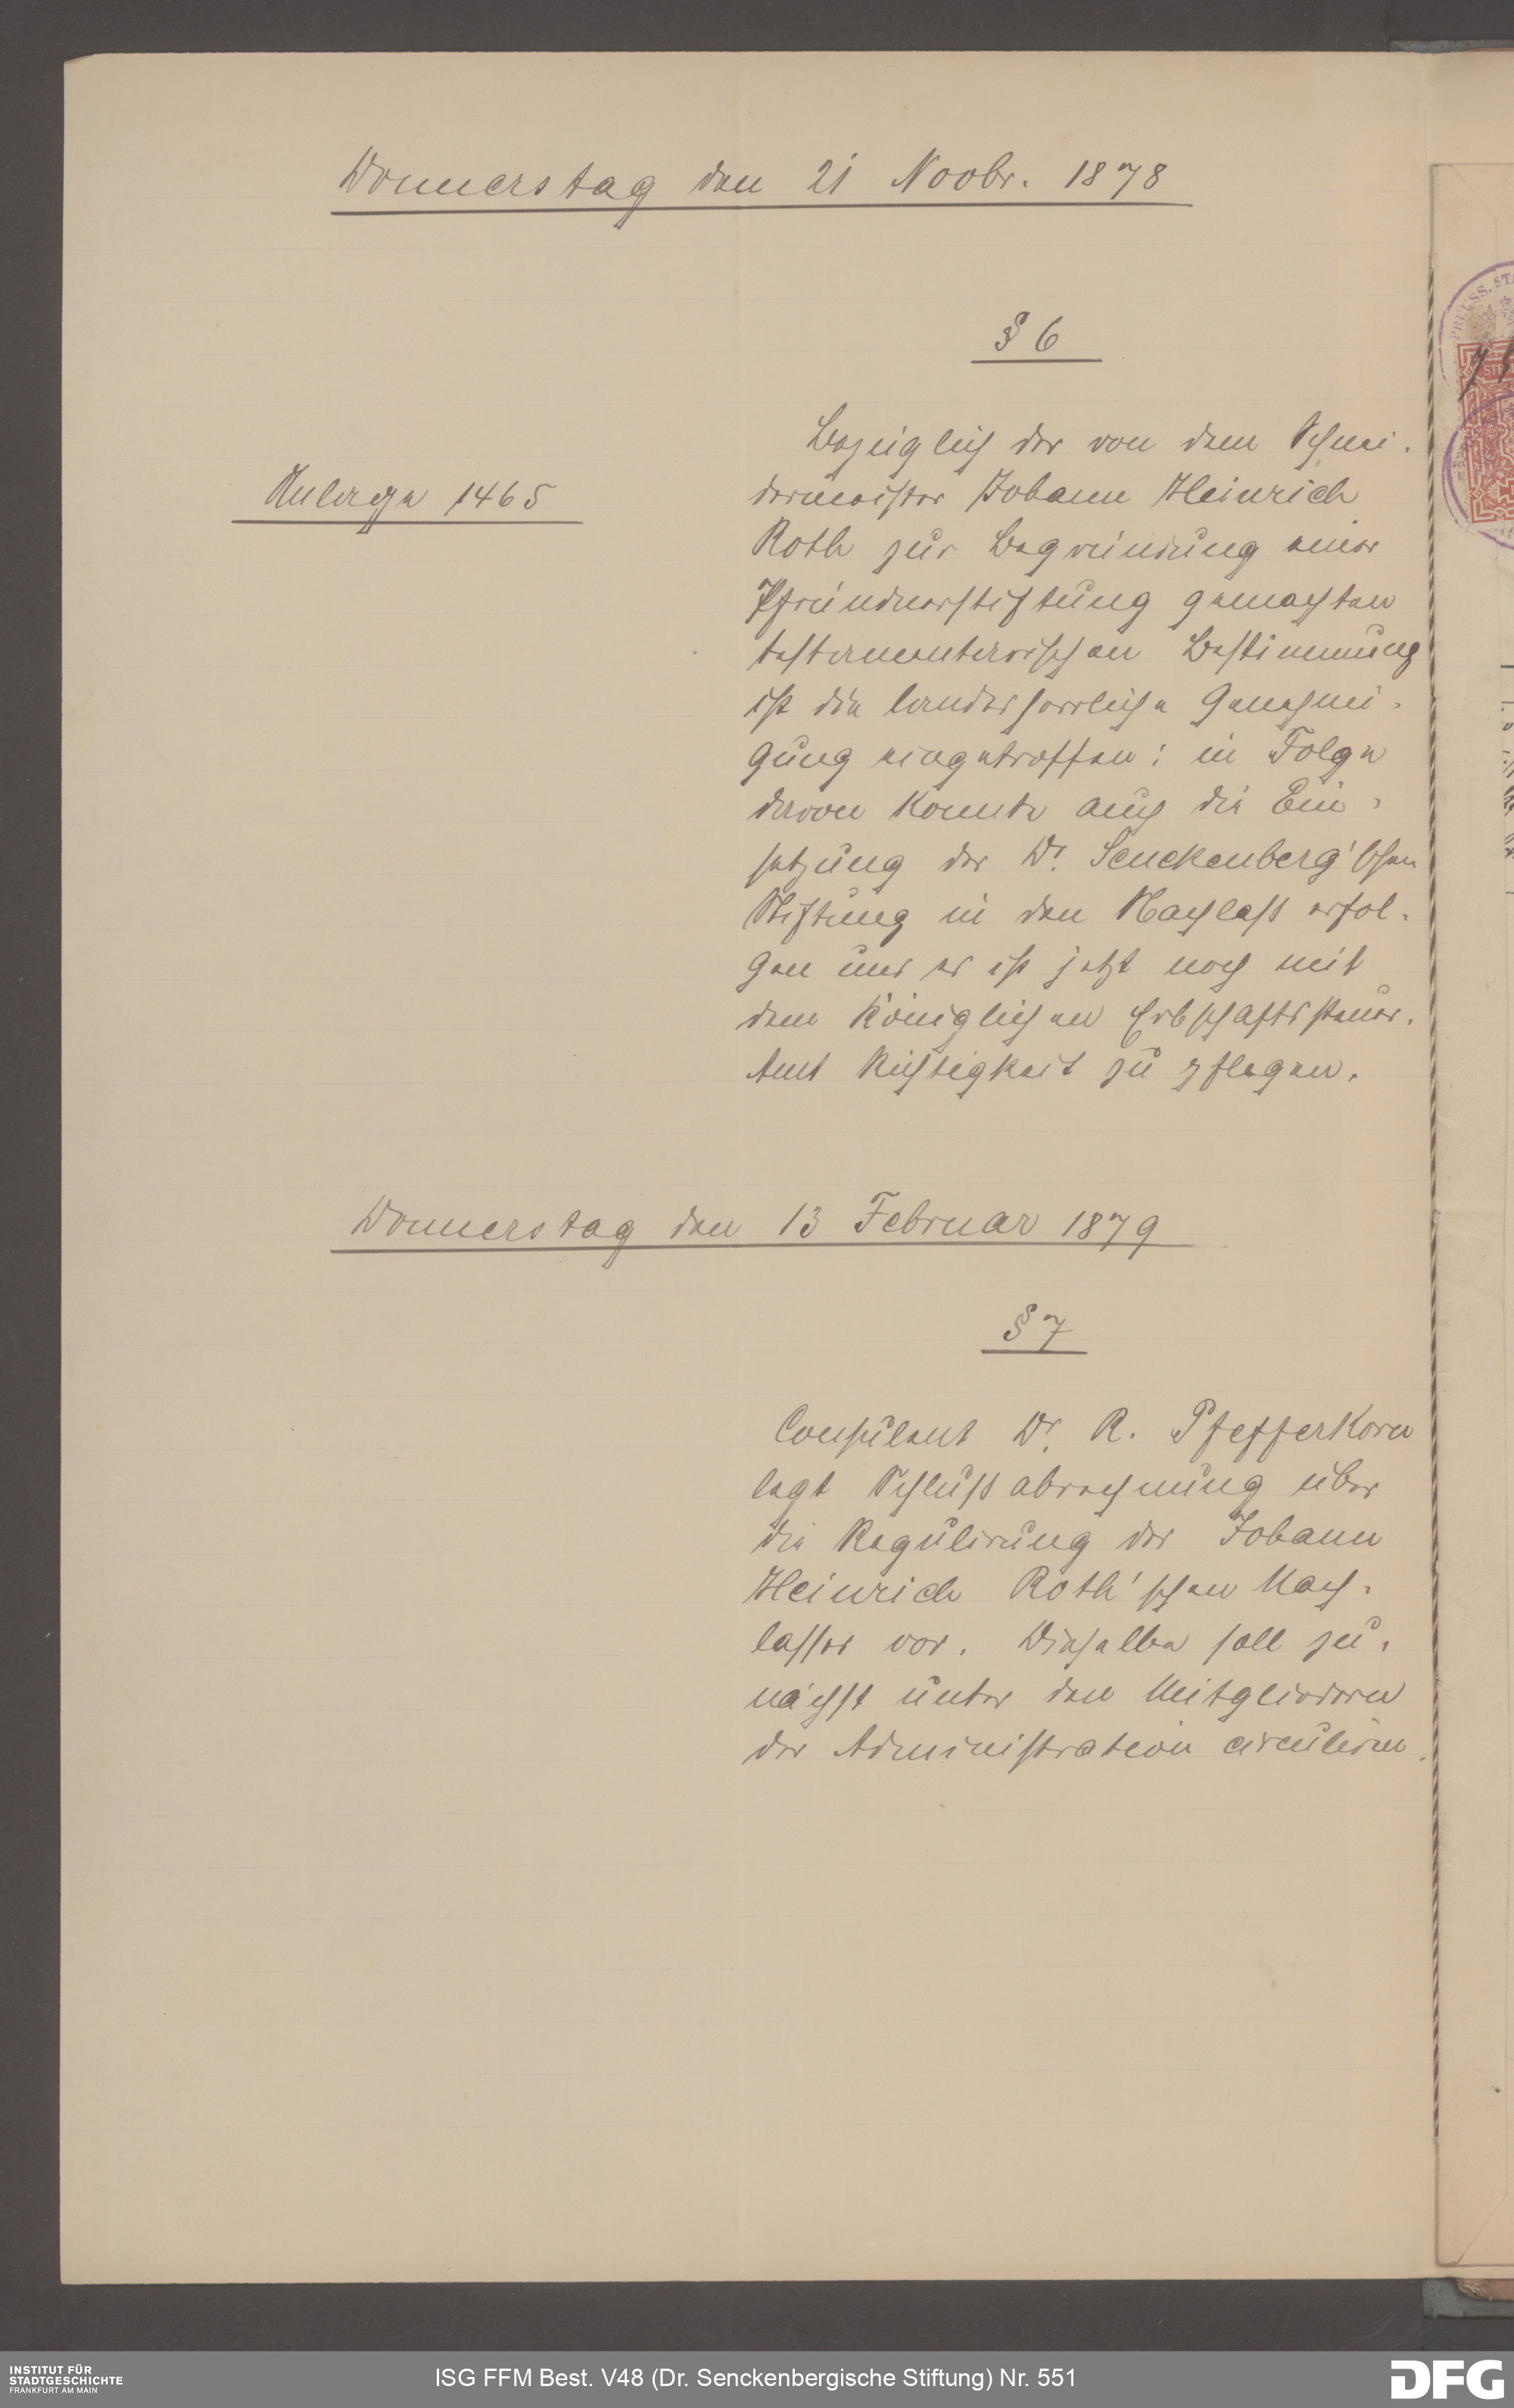 Donnerstag den 21 Novbr. 1878
§ 6
Anlage 1465
Bezüglich der von dem Schnei-
dermeister Johann Heinrich
Roth zur Begründung einer
Pfründnerstiftung gemachten
testamentarischen Bestimmung
ist die landesherrliche Genehmi-
gung eingetroffen; in Folge
davon konnte auch die Ein-
setzung der Dr. Senckenberg'schen
Stiftung in den Nachlaß erfol-
gen und es ist jetzt noch mit
dem Königlichen Erbschaftssteuer-
Amt Richtigkeit zu pflegen.
Donnerstag den 13 Februar 1879
§ 7
Consulent Dr. R. Pfefferkorn
legt Schlußabrechnung über
die Regulirung des Johann
Heinrich Roth'schen Nach-
lasses vor. Dieselbe soll zu-
nächst unter den Mitgliedern
der Administration circuliren.
PREUSS. ST
INSTITUT FÜR
STADTGESCHICHTE
FRANKFURT AM MAIN
ISG FFM Best. V48 (Dr. Senckenbergische Stiftung) Nr. 551
DFG